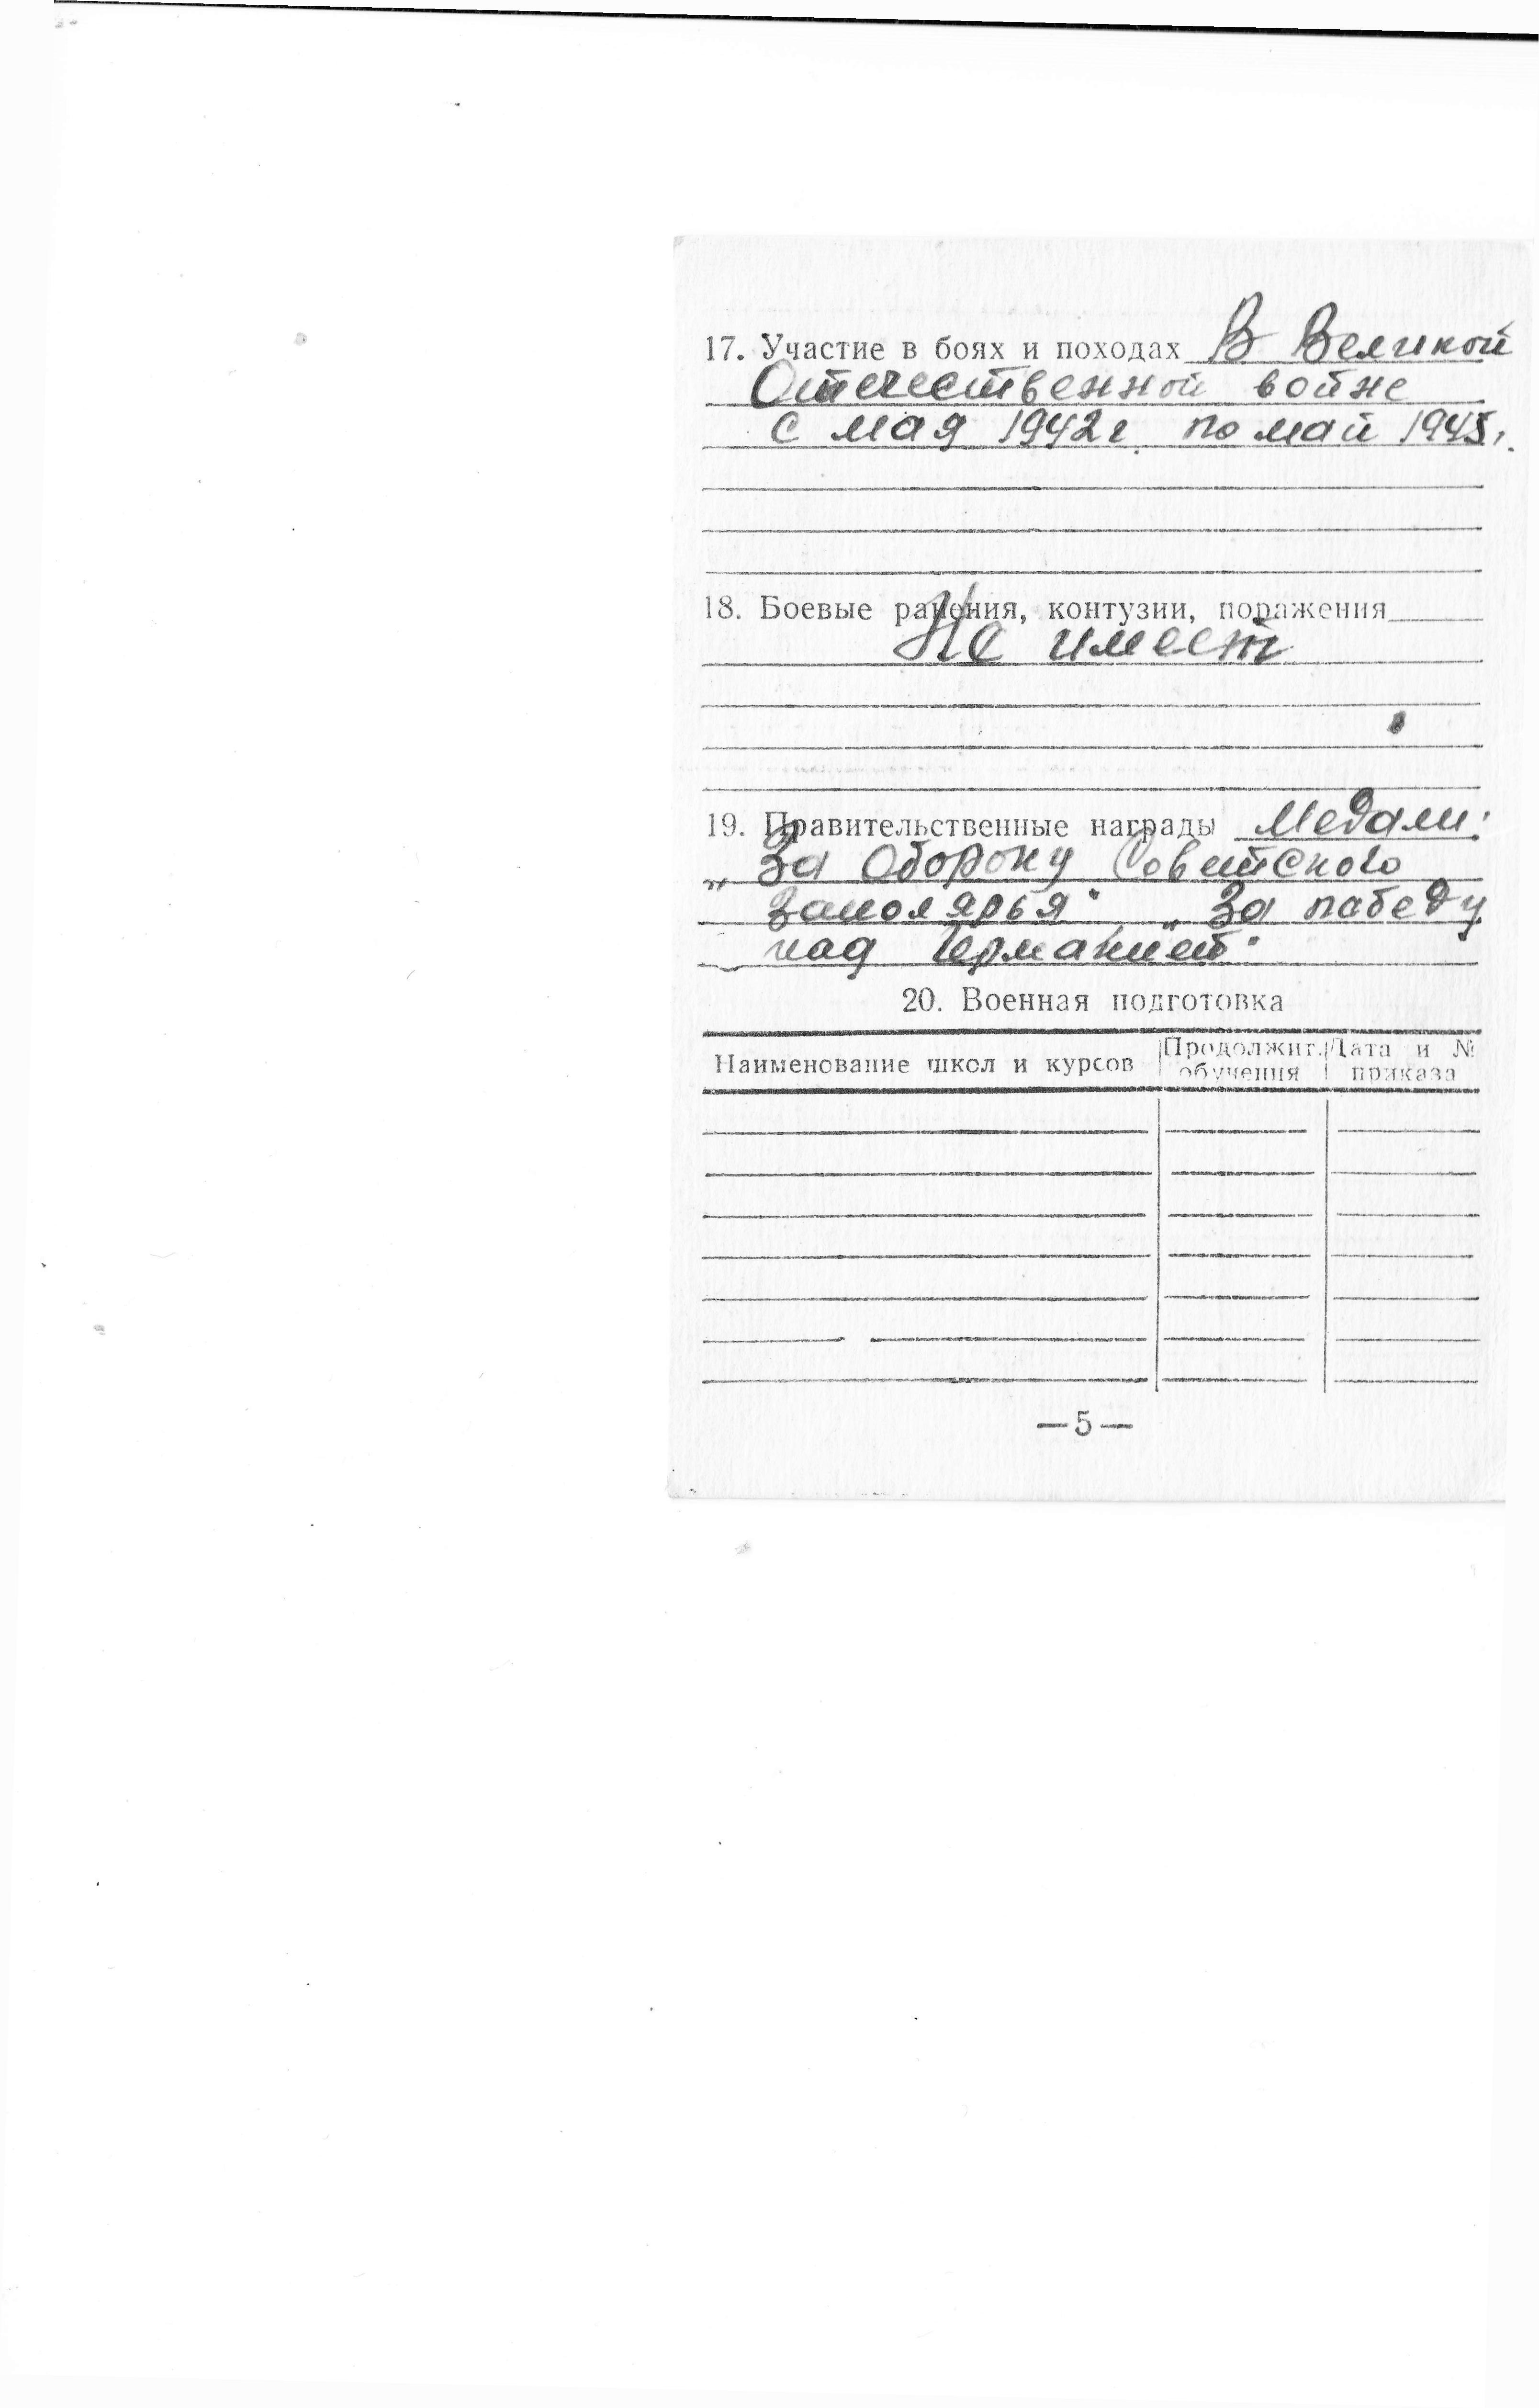 17. Участие в боях и походах В Великой
Отечественной войне
с мая 1942 г. по май 1945 г.
18. Боевые ранения, контузии, поражения
Не имеет
19. Правительственные награды Медали:
„За Оборону Советского
Заполярья" „За победу
над Германией"
20. Военная подготовка
Наименование школ и курсов Продолжит. Дата и №
обучения приказа
— 5 —